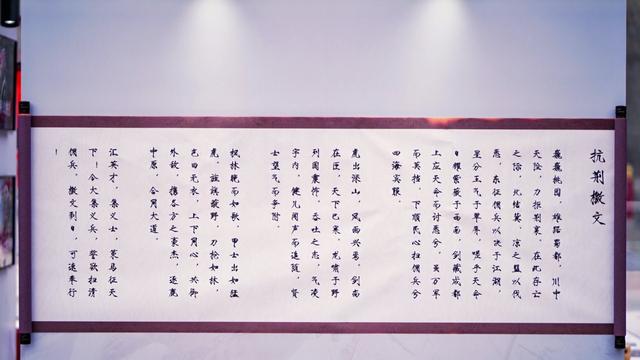 抗荆檄文
巍巍桃园，雄踞蜀都，川中
天险，力拒荆襄，在此存亡
之际，北结冀、凉之盟以伐
恶，东征偶兵以决于江湖，
里分王气于草莽，嗟乎天命
日耀紫薇于西南，剑藏成都
上应天命而讨愚兮，虽万军
而莫挡，下顺民心扫偶兵兮
四海宾服。
虎出深山，风雨兴焉，剑南
在匣，天下已寒，龙啸于野
列国震怖，吞吐之志，气凌
宇内，健儿闻声而追随，贤
士望气而争附。
枫林晚而如歌，甲士出如猛
虎，旌旗蔽野，刀枪如林，
色曰无衣，上下同心，共御
外敌，携各方之豪杰，逐鹿
中原，合同大道。
汇英才，集义士，策马征天
下！今大集义兵，誓欲扫清
偶兵，檄文到日，可速奉行
！